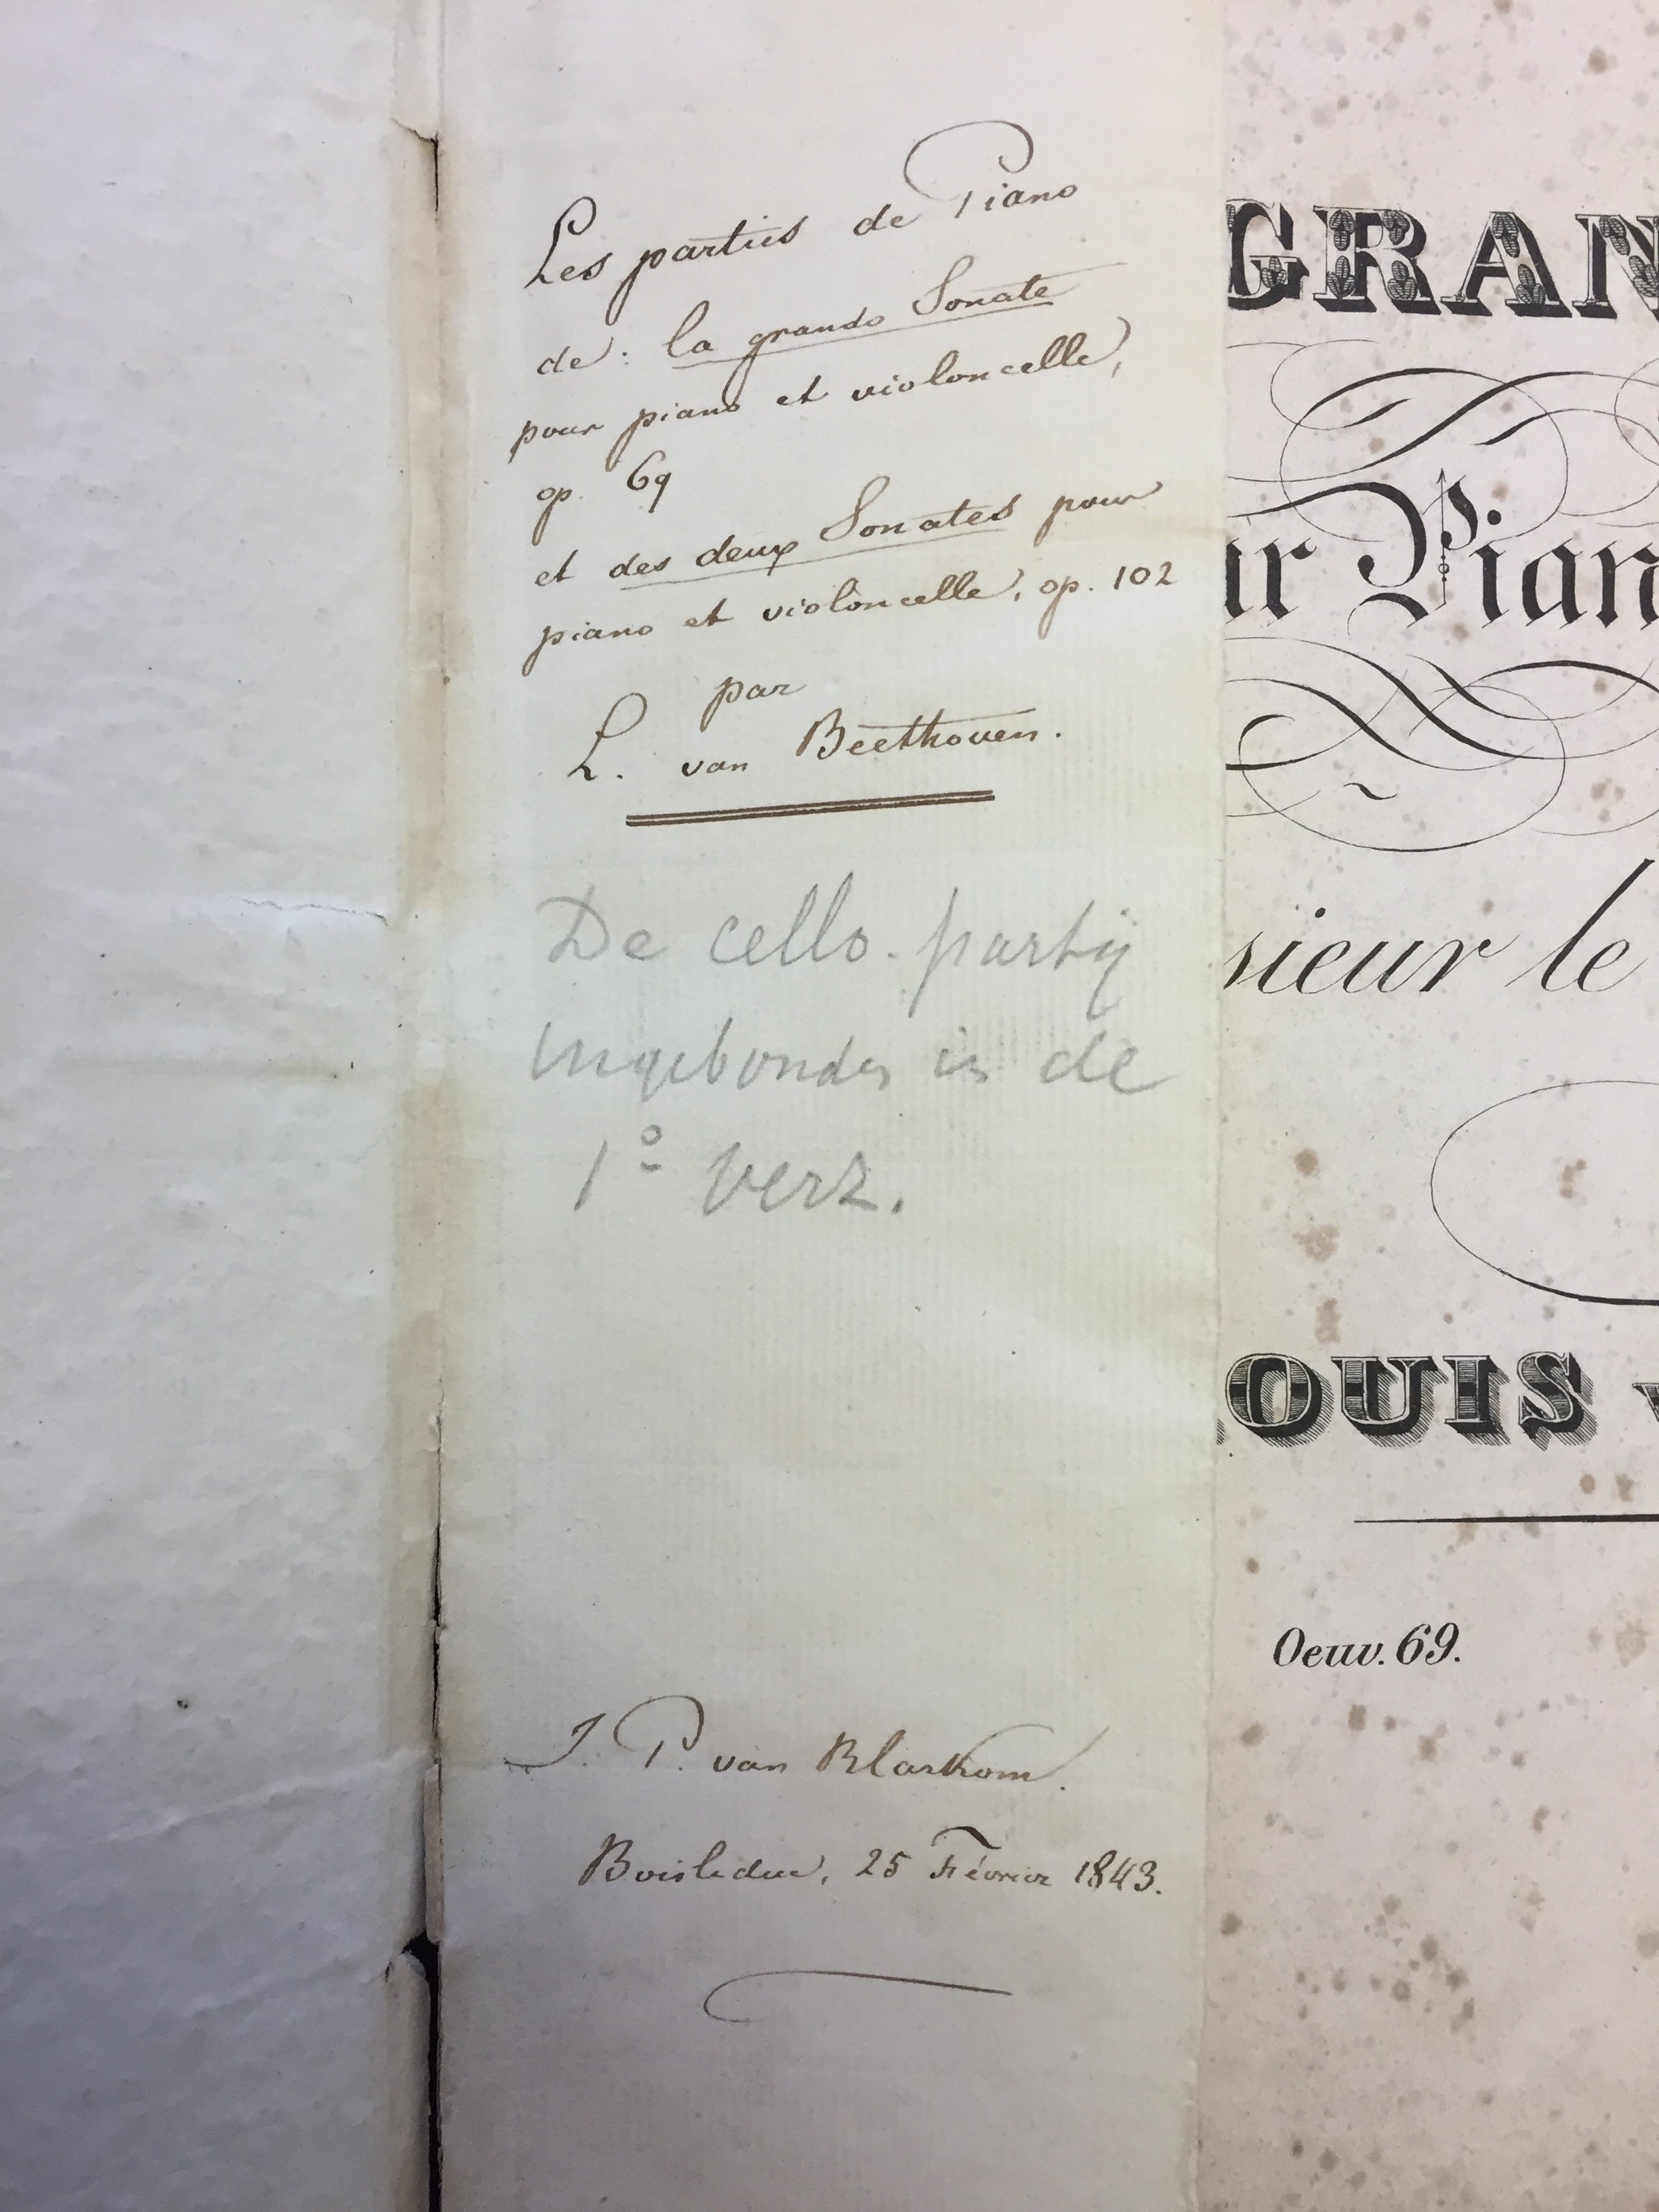 Les parties de Piano
de: la grande Sonate
pour piano et violoncelle,
op. 69
et des deux Sonates pour
piano et violoncelle, op. 102
par
L. van Beethoven.
De cello-partij
ingebonden in de
1º verz.
J. P. van Blarkom.
Boisleduc, 25 Février 1843.
GRAN
ur Pian
sieur le
OUIS v
Oeuv. 69.